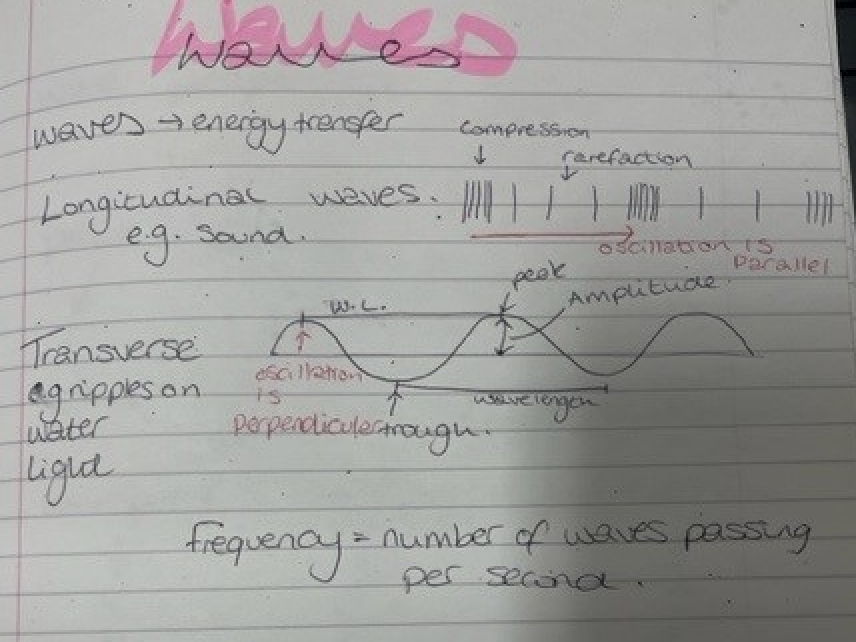 Waves
waves
waves → energy transfer
compression
rarefaction
Longitudinal waves.
e.g. Sound.
oscillation is
Parallel
peak
Amplitude
W.L.
Transverse
eg ripples on
water
light
oscillation
is
Perpendicular
trough.
wavelength
frequency = number of waves passing
per second.